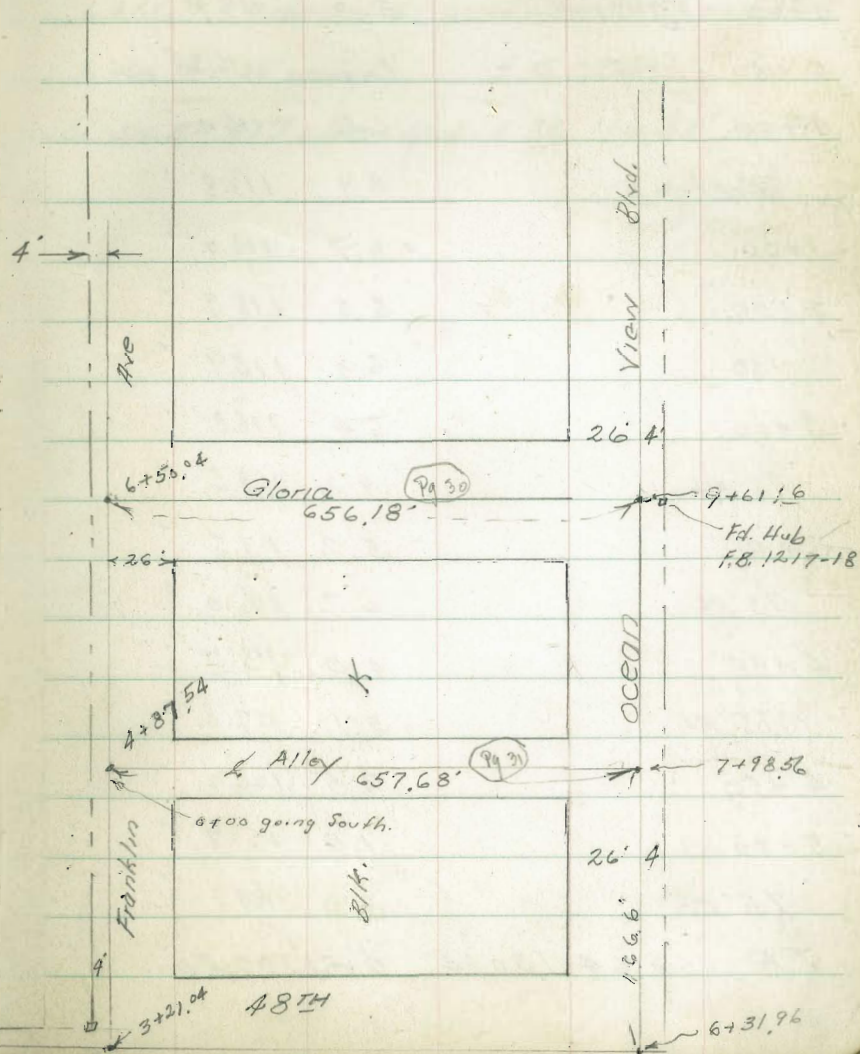 4'
Ave
View Blvd.
26' 4'
6+50.04
Gloria
Pg 30
9+61.16
656.18'
Fd. Hub
F.B. 1217-18
26'
K
Ocean
4+87.54
℄ Alley
Pg 31
657.68'
7+98.56
0+00 going South.
Franklin
Blk.
26' 4
166.6'
4'
3+21.04
48TH
6+31.96